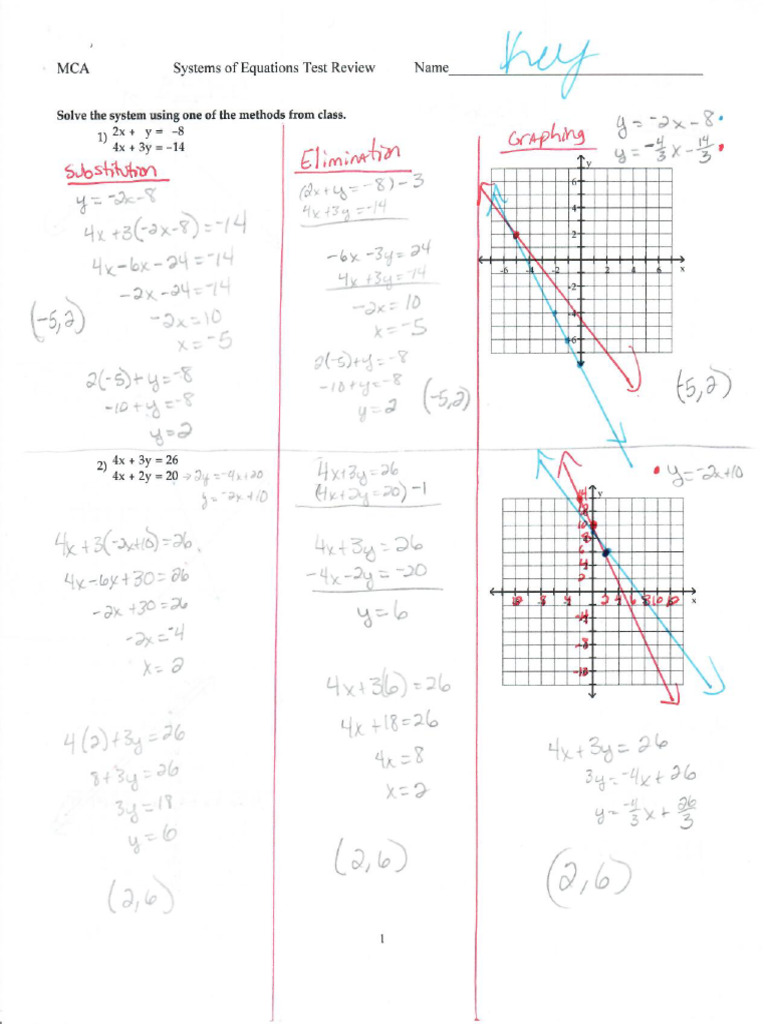 MCA Systems of Equations Test Review Name Key
Solve the system using one of the methods from class.
1) 2x + y = -8
4x + 3y = -14
Substitution
y = -2x-8
4x +3(-2x-8) = -14
4x-6x-24 = -14
-2x-24 = -14
-2x = 10
x = -5
(-5,2)
2(-5)+y = -8
-10 + y = -8
y = 2
Elimination
(2x+y = -8) -3
4x+3y = -14
-6x -3y = 24
4x +3y = -14
-2x = 10
x = -5
2(-5)+y = -8
-10+y = -8
y = 2
(-5,2)
Graphing
y = -2x-8
y = -4/3 x - 14/3
y
6
4
2
-6 -4 -2 2 4 6 x
-2
-4
-6
(-5,2)
2) 4x + 3y = 26
4x + 2y = 20 → 2y = -4x+20
y = -2x+10
4x+3(-2x+10) = 26
4x-6x+30 = 26
-2x +30 = 26
-2x = -4
x = 2
4(2)+3y = 26
8+3y = 26
3y = 18
y = 6
(2,6)
4x+3y = 26
(4x+2y = 20) -1
4x+3y = 26
-4x-2y = -20
y = 6
4x+3(6) = 26
4x +18 = 26
4x = 8
x = 2
(2,6)
y = -2x+10
y
10
8
6
4
2
2 4 6 8 10 12 x
4x+3y = 26
3y = -4x+26
y = -4/3 x + 26/3
(2,6)
1